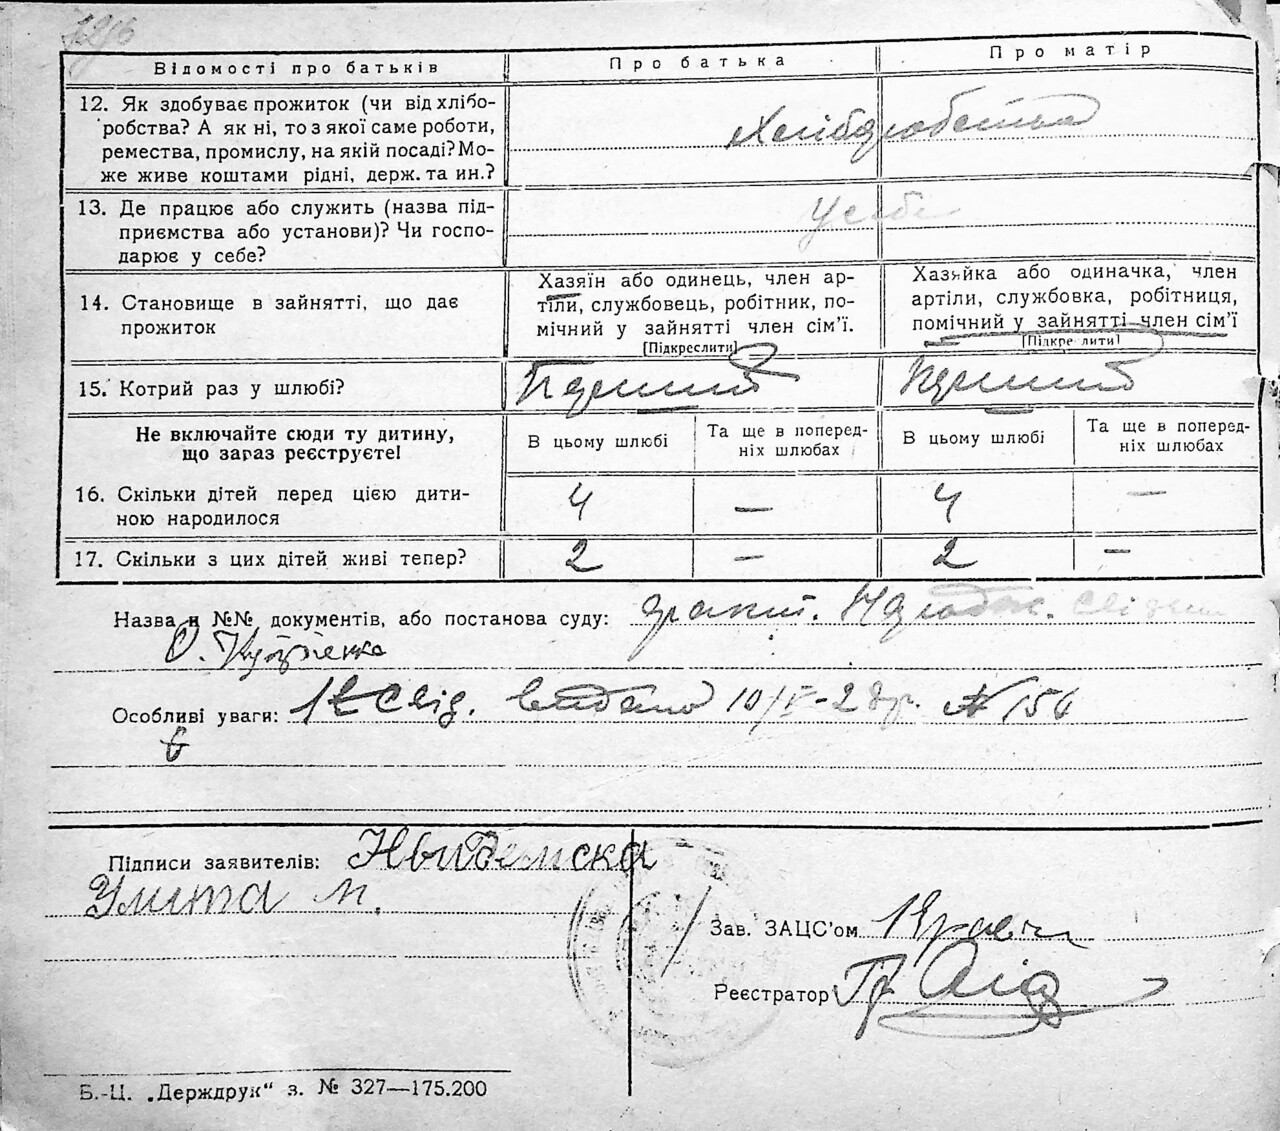 Відомості про батьків
Про батька
Про матір
12. Як здобуває прожиток (чи від хлібо-
робства? А як ні, то з якої саме роботи,
ремества, промислу, на якій посаді? Мо-
же живе коштами рідні, держ. та ин.?
Хліборобство
13. Де працює або служить (назва під-
приємства або установи)? Чи госпо-
дарює у себе?
У себе
14. Становище в зайнятті, що дає
прожиток
Хазяїн або одинець, член ар-
тіли, службовець, робітник, по-
мічний у зайнятті член сім’ї.
[Підкреслити]
Хазяйка або одиначка, член
артіли, службовка, робітниця,
помічний у зайнятті член сім’ї
[Підкре лити]
15. Котрий раз у шлюбі?
Перший
Перший
Не включайте сюди ту дитину,
що зараз реєструєте!
В цьому шлюбі
Та ще в поперед-
ніх шлюбах
В цьому шлюбі
Та ще в поперед-
ніх шлюбах
16. Скільки дітей перед цією дити-
ною народилося
4 — 4 —
17. Скільки з цих дітей живі тепер?
2 — 2 —
Назва и №№ документів, або постанова суду:
Особливі уваги: свід. видано 10/V-2 др. № 154
Підписи заявителів:
Улита
Зав. ЗАЦС’ом
Реєстратор
Б.-Ц. „Держдрук“ з. № 327—175.200